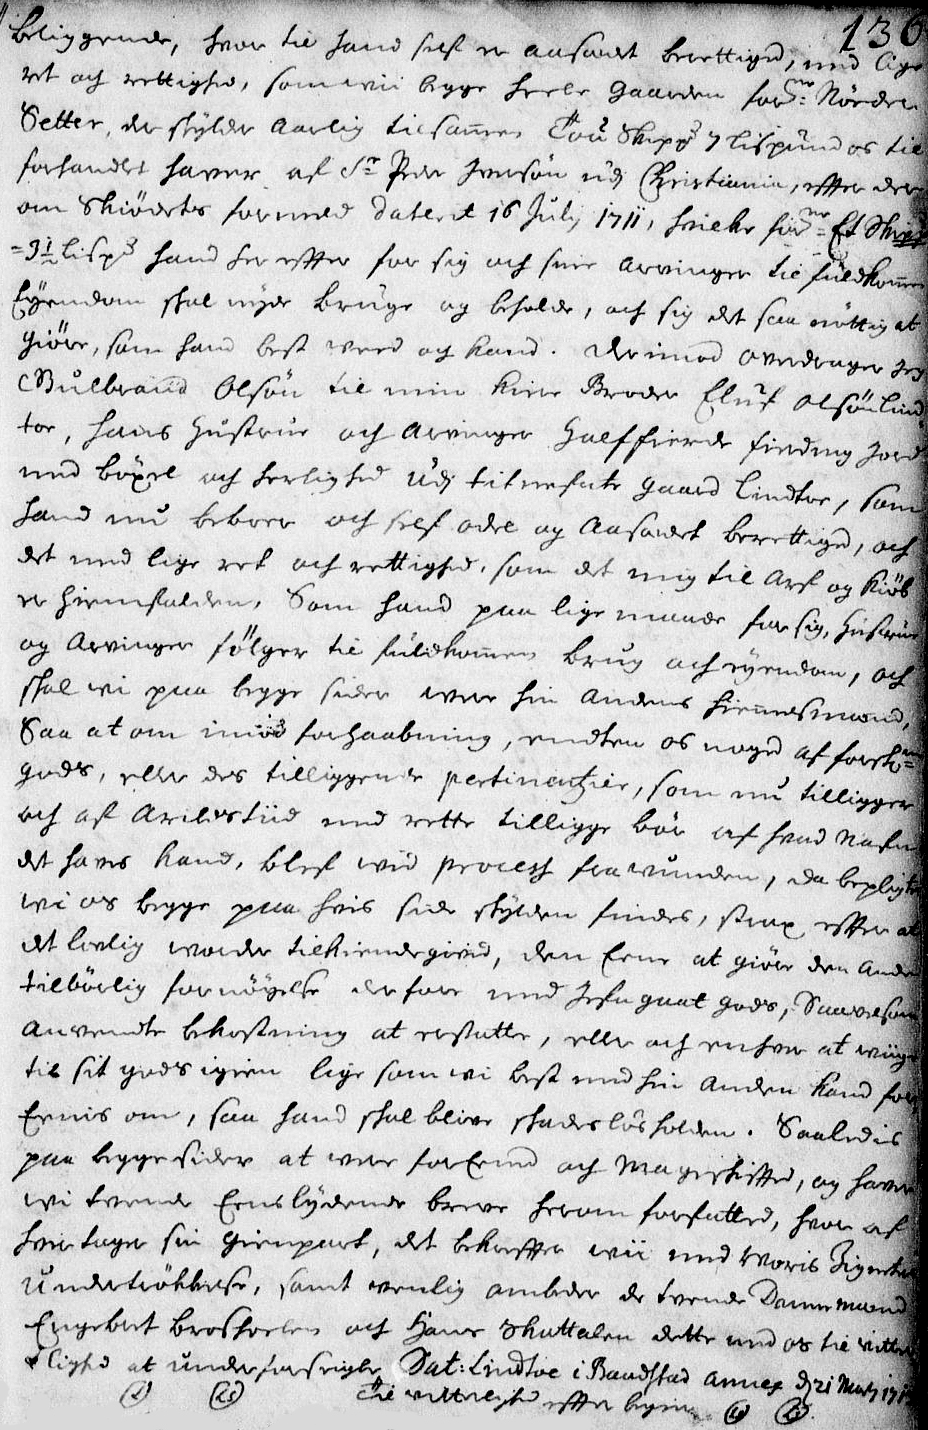 136
beliggende, hvor til hand self er aasædet berettiget, med lige
ret och rettighed, som wii begge heele gaarden forne: Nordre
Setter, der skylder Aarlig tilsamen Tou Skippd 7 lispund os til
forhandlet haver af Sr Peder Iversøn udj Christiania, efter der
om Skiødets formeld dateret 16 July 1711, hvilke forne = Et Skipd
= 3½ lispd hand her effter for sig och sine Arvinger til fuldkomen
Eyendom skal nyde bruge og beholde, och sig det saa nøttig at
giøre, som hand best weed og kand. Derimod overdrager Jeg
Gulbrand Olsøn til min kiere Broder Eluf Olsøn Lind
toe, hans hustrue och Arvinger Halffierde fierding Jord
med bøxel och herlighed udj titnefnte gaard Lindtoe, som
hand nu beboer och self odel og Aasædet berettiget, och
det med lige ret och rettighed, som det mig til Arf og Kiøb
er hiemfalden, Som hand paa lige maade for sig, hustrue
og Arvinger følger til fuldkommen brug och eyendom, och
skal wi paa begge sider were hin Andens hiemelsmand,
Saa at om imod forhaabning, endten os noget af forskne
gods, eller des tilliggende pertinentzier, som nu tilligger
och af Arilds tiid med rette tilligge bør af hvad Nafn
det haves kand, blef wed process fra wunden, da bepligter
wi os begge paa hvis side skylden findes, strax efter at
det lovlig worder tilkiendegivet, den Eene at giøre den Anden
tilbørlig fornøyelse derfore med Jefngaat gods, Saavelsom
Anvendte bekostning at erstatte, eller och enhver at wiige
til sit gods igien lige som wi best med hin Anden kand for
Eenis om, saa hand skal blive skadesløs holden. Saaledis
paa begge sider at were forEenet och Mageskifted, og haver
wi tvende Eenslydende breve herom forfatted, hvor af
hver tager sin Gienpart, det bekreffter wii med Woris Zigneters
undertrøkkelse, samt wenlig ombeder de tvende Dannemænd
Engebret Broskoelen och Hans Skattalen dette med os til witter
lighed at underforseigle Dat: Lindtoe i Baadstad annex d 21 Martj
Til vitterlighed effter begier